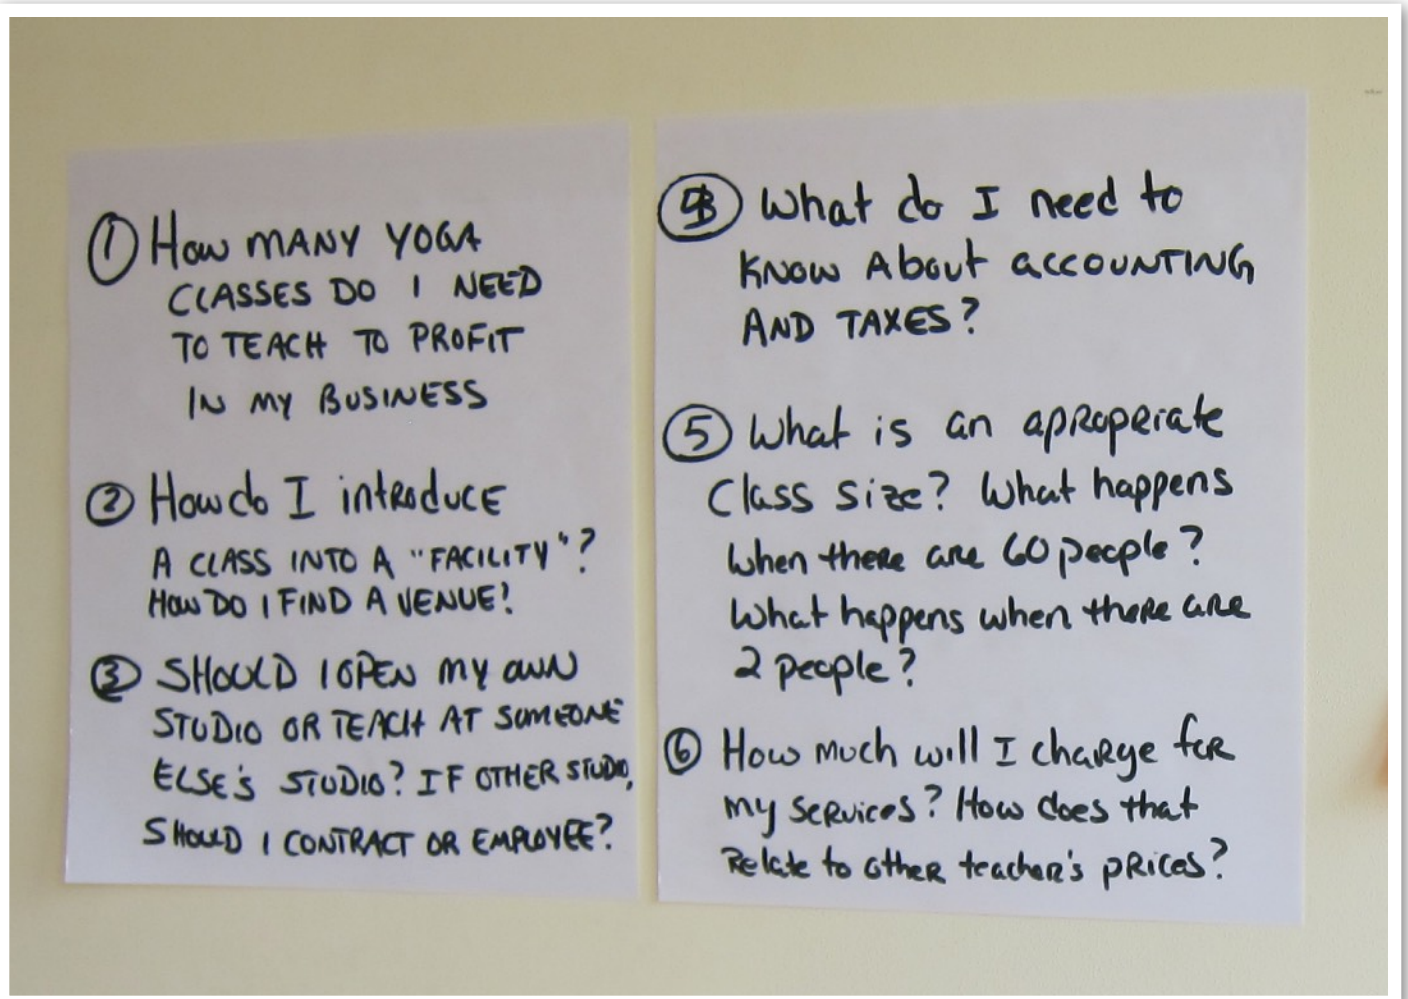 ① How MANY YOGA
CLASSES DO I NEED
TO TEACH TO PROFIT
IN MY BUSINESS
② How do I introduce
A CLASS INTO A "FACILITY"?
HOW DO I FIND A VENUE?
③ SHOULD I OPEN MY OWN
STUDIO OR TEACH AT SOMEONE
ELSE'S STUDIO? IF OTHER STUDIO,
SHOULD I CONTRACT OR EMPLOYEE?
④ What do I need to
KNOW About ACCOUNTING
AND TAXES?
⑤ What is an apropriate
Class size? What happens
when there are 60 people?
What happens when there are
2 people?
⑥ How much will I charge for
my services? How does that
Relate to other teacher's prices?